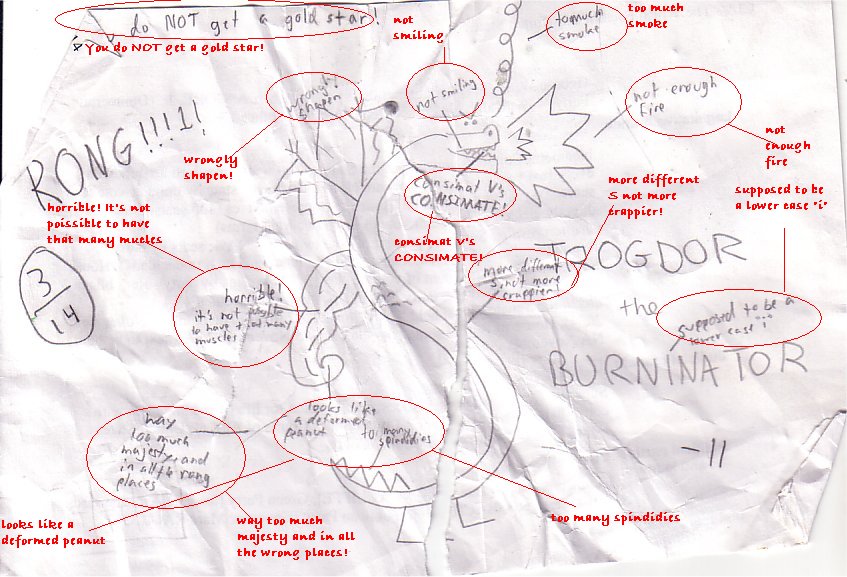 do NOT get a gold star!
You do NOT get a gold star!
not
smiling
too much
smoke
too much
smoke
wrongly
shapen
not smiling
not enough
fire
RONG!!!1!
wrongly
shapen!
not
enough
fire
consimat V's
CONSIMATE!
more different
S not more
crappier!
supposed to be
a lower case "i"
horrible! It's not
poissible to have
that many mucles
consimat V's
CONSIMATE!
TROGDOR
more different
S, not more
crappier!
3/14
horrible!
it's not possible
to have that many
muscles
the
supposed to be a
lower case "i"
BURNINATOR
way
too much
majesty, and
in all the rong
places
looks like
a deformed
peanut
to many
spindidies
-11
looks like a
deformed peanut
way too much
majesty and in all
the wrong places!
too many spindidies